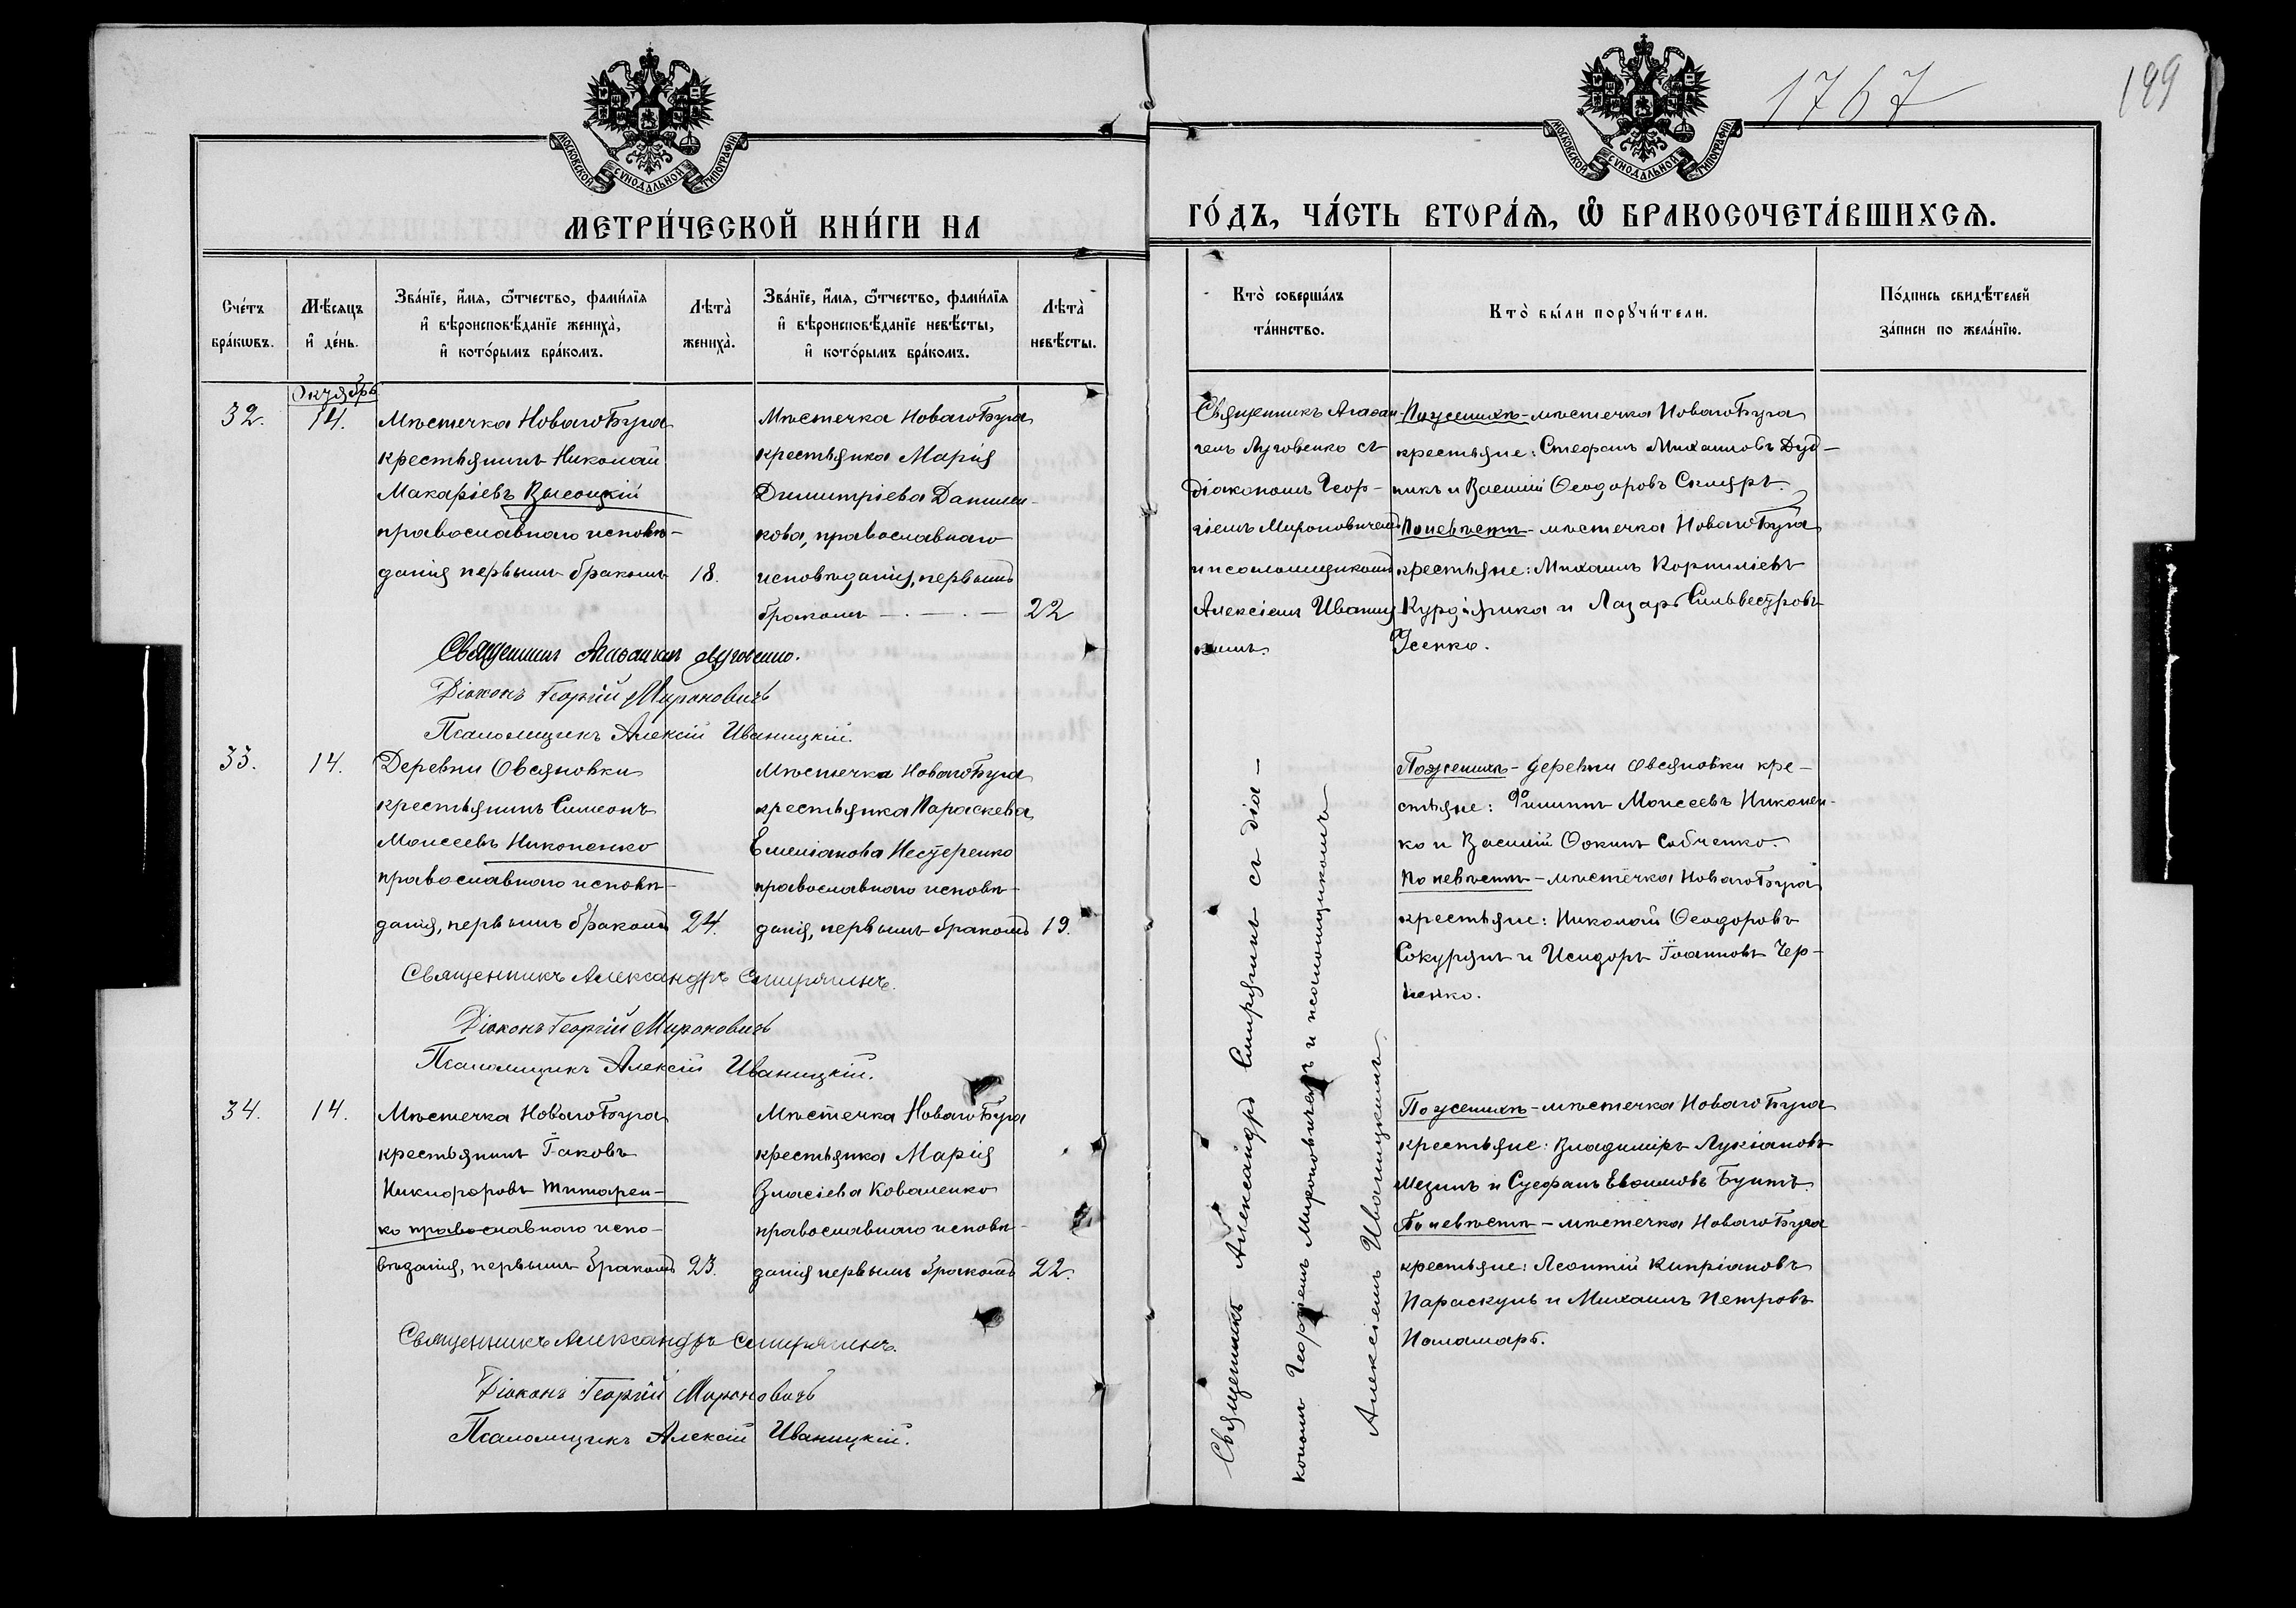 1767
199
МОСКОВСКОЙ СУНОДАЛЬНОЙ ТИПОГРАФІИ
МОСКОВСКОЙ СУНОДАЛЬНОЙ ТИПОГРАФІИ
МЕТРИ́ЧЕСКОЙ КНИ́ГИ НА
ГО́ДЪ, ЧА́СТЬ ВТОРА́Ѧ, Ѽ БРАКОСОЧЕТА́ВШИХСѦ.
Сче́тъ
бра́кѡвъ.
Мѣ́сяцъ
и҆ де́нь.
Зва́нїе, и҆́мя, ѻ҆́тчество, фами́лїя
и҆ вѣроисповѣ́данїе жениха̀,
и҆ кото́рымъ бра́комъ.
Лѣта̀
жениха̀.
Зва́нїе, и҆́мя, ѻ҆́тчество, фами́лїя
и҆ вѣроисповѣ́данїе невѣ́сты,
и҆ кото́рымъ бра́комъ.
Лѣта̀
невѣ́сты.
Кто̀ соверша́лъ
та́инство.
Кто̀ бы́ли порꙋчи́тели.
По́дпись свидѣ́телей
за́писи по жела́нїю.
Октябрь
32.
14.
Мѣстечка Новаго Буга
крестьянинъ Николай
Макаріевъ Высоцкій
православнаго исповѣ-
данія первымъ бракомъ
18.
Мѣстечка Новаго Буга
крестьянка Марія
Димитріева Данилен-
кова, православнаго
исповѣданія, первымъ
бракомъ
22
Священникъ Агаѳан-
гелъ Луговенко съ
діакономъ Геор-
гіемъ Мироновичемъ
и псаломщикомъ
Алексіемъ Иваниц-
кимъ.
По женихѣ - мѣстечка Новаго Буга
крестьяне: Стефанъ Михаиловъ Дуд-
никъ и Василій Ѳеодоровъ Скляръ.
По невѣстѣ - мѣстечка Новаго Буга
крестьяне: Михаилъ Корниліевъ
и Лазарь Сильвестровъ
Усенко.
Священникъ Агаѳангелъ Луговенко.
Діаконъ Георгій Мироновичъ
Псаломщикъ Алексій Иваницкій.
33.
14.
Деревни Овсяновки
крестьянинъ Симеонъ
Моисеевъ Никоненко
православнаго исповѣ-
данія, первымъ бракомъ
24.
Мѣстечка Новаго Буга
крестьянка Параскева
Емеліанова Нестеренко
православнаго исповѣ-
данія, первымъ бракомъ
19.
Священникъ Александръ съ діа-
кономъ Георгіемъ Мироновичемъ и псаломщикомъ
Алексіемъ Иваницкимъ.
По женихѣ - деревни Овсяновки кре-
стьяне: Филиппъ Моисеевъ Никонен-
ко и Василій Ѳокинъ Собченко.
По невѣстѣ - мѣстечка Новаго Буга
крестьяне: Николай Ѳеодоровъ
и Исидоръ Іоанновъ Чер-
ненко.
Священникъ Александръ
Діаконъ Георгій Мироновичъ
Псаломщикъ Алексій Иваницкій.
34.
14.
Мѣстечка Новаго Буга
крестьянинъ Іаковъ
Никифоровъ Титарен-
ко православнаго испо-
вѣданія, первымъ бракомъ
23.
Мѣстечка Новаго Буга
крестьянка Марія
Власіева Коваленко
православнаго исповѣ-
данія первымъ бракомъ
22.
По женихѣ - мѣстечка Новаго Буга
крестьяне: Владиміръ Лукіановъ
и Стефанъ Евѳимовъ
По невѣстѣ - мѣстечка Новаго Буга
крестьяне: Леонтій Кипріановъ
и Михаилъ Петровъ
Паламарь.
Священникъ Александръ
Діаконъ Георгій Мироновичъ
Псаломщикъ Алексій Иваницкій.